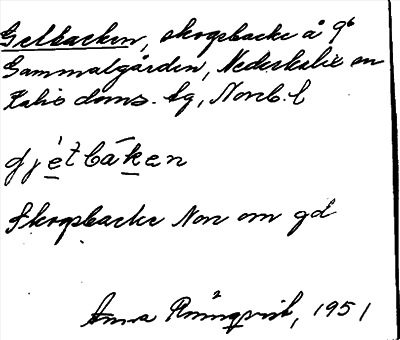 Getbacken, skogsbacke å gd
Gammalgården, Nederkalix sn
Kalix doms. tg, Norrb. l
djétbáken
Skogsbacke Non om gd
Anna Rönnqvist, 1951